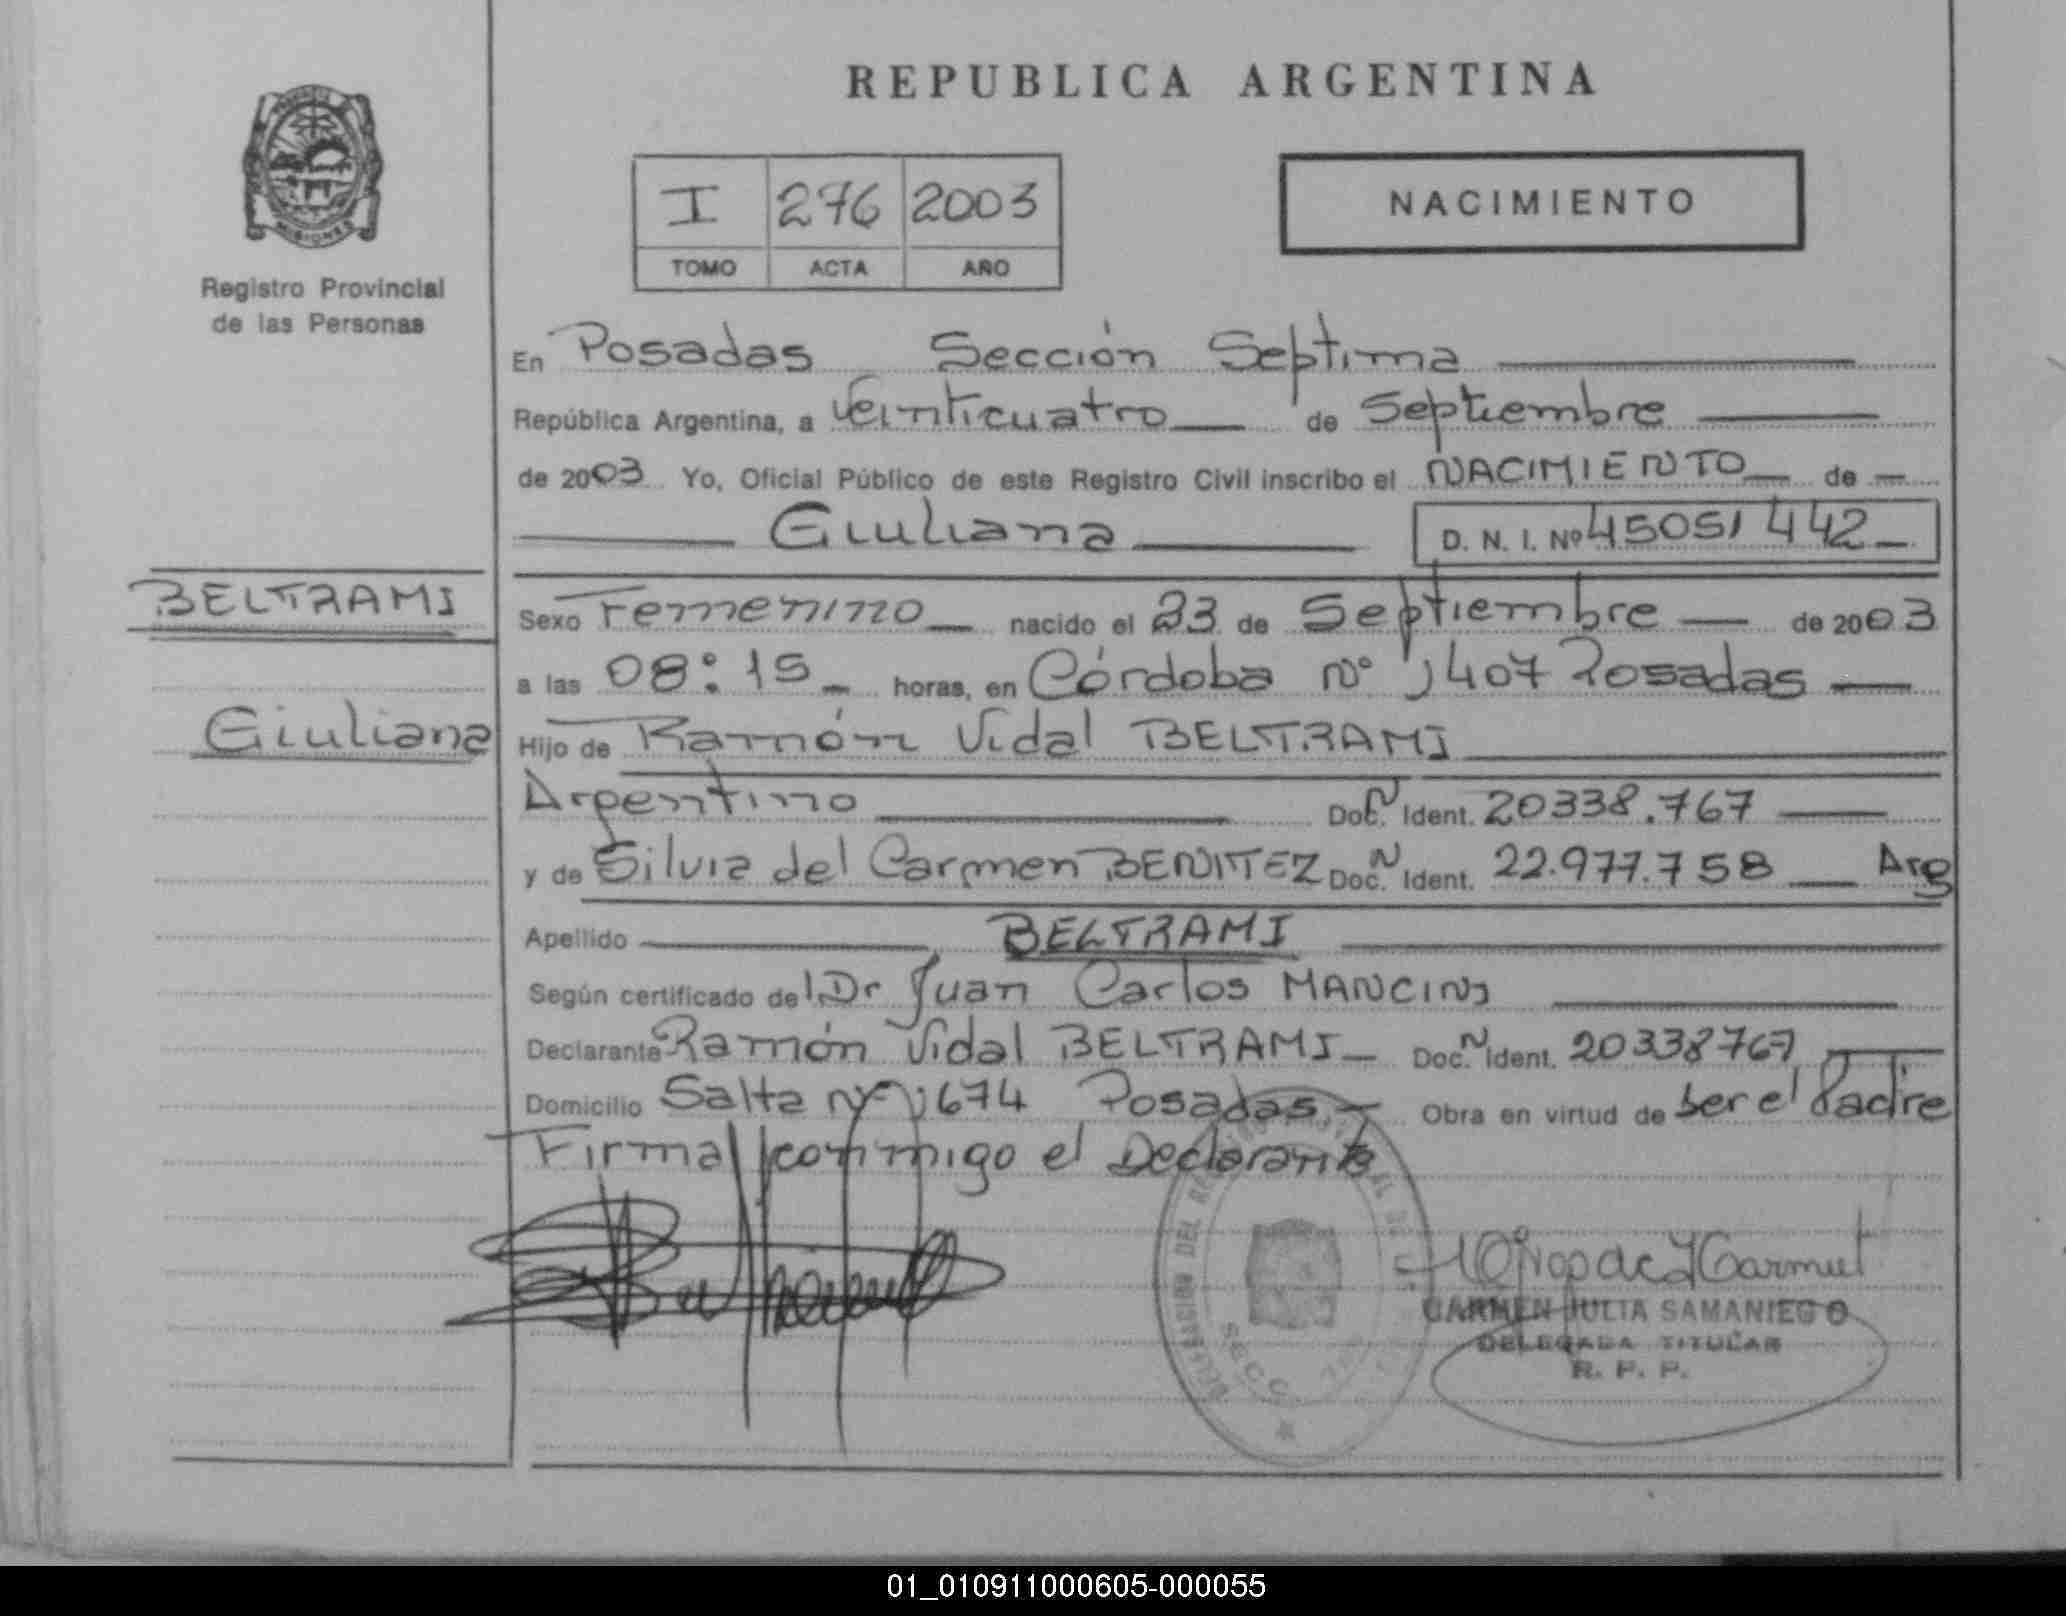 REPUBLICA ARGENTINA
MISIONES
Registro Provincial
de las Personas
I 276 2003
TOMO ACTA AÑO
NACIMIENTO
En Posadas Sección Septima
República Argentina, a Veinticuatro de Septiembre
de 2003 Yo, Oficial Público de este Registro Civil inscribo el NACIMIENTO de
Giuliana D. N. I. Nº 45051442
BELTRAMI
Giuliana
Sexo Femenino nacido el 23 de Septiembre de 2003
a las 08:15 horas, en Córdoba Nº 1407 Posadas
Hijo de Ramón Vidal BELTRAMI
Argentino Doc. N Ident. 20338.767
y de Silvia del Carmen BENITEZ Doc. N Ident. 22.977.758 Arg
Apellido BELTRAMI
Según certificado del Dr Juan Carlos MANCINI
Declarante Ramón Vidal BELTRAMI Doc. N Ident. 20338767
Domicilio Salta Nº 1674 Posadas Obra en virtud de ser el Padre
Firma conmigo el Declarante
CARMEN JULIA SAMANIEGO
DELEGADA TITULAR
R. P. P.
01_010911000605-000055